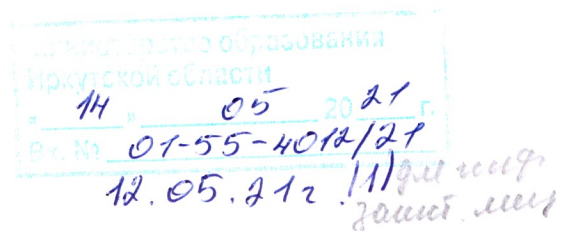 министерство образования
Иркутской области
"14" 05 2021 г.
Вх. № 01-55-4012/21
12.05.21г. (1)